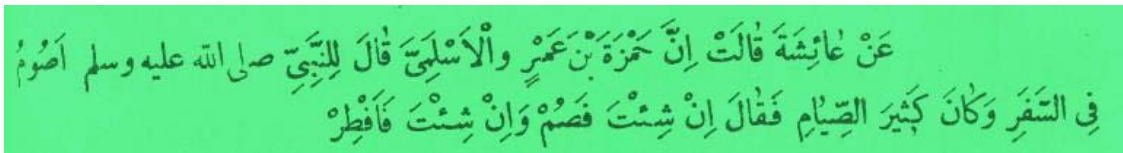 عَنْ عَائِشَةَ قَالَتْ اِنَّ حَمْزَةَ بْنَ عَمْرٍ والْاَسْلَمِيَّ قَالَ لِلنَّبِيِّ صلى الله عليه وسلم اَصُومُ
فِى السَّفَرِ وَكَانَ كَثِيرَ الصِّيَامِ فَقَالَ اِنْ شِئْتَ فَصُمْ وَاِنْ شِئْتَ فَاَفْطِرْ